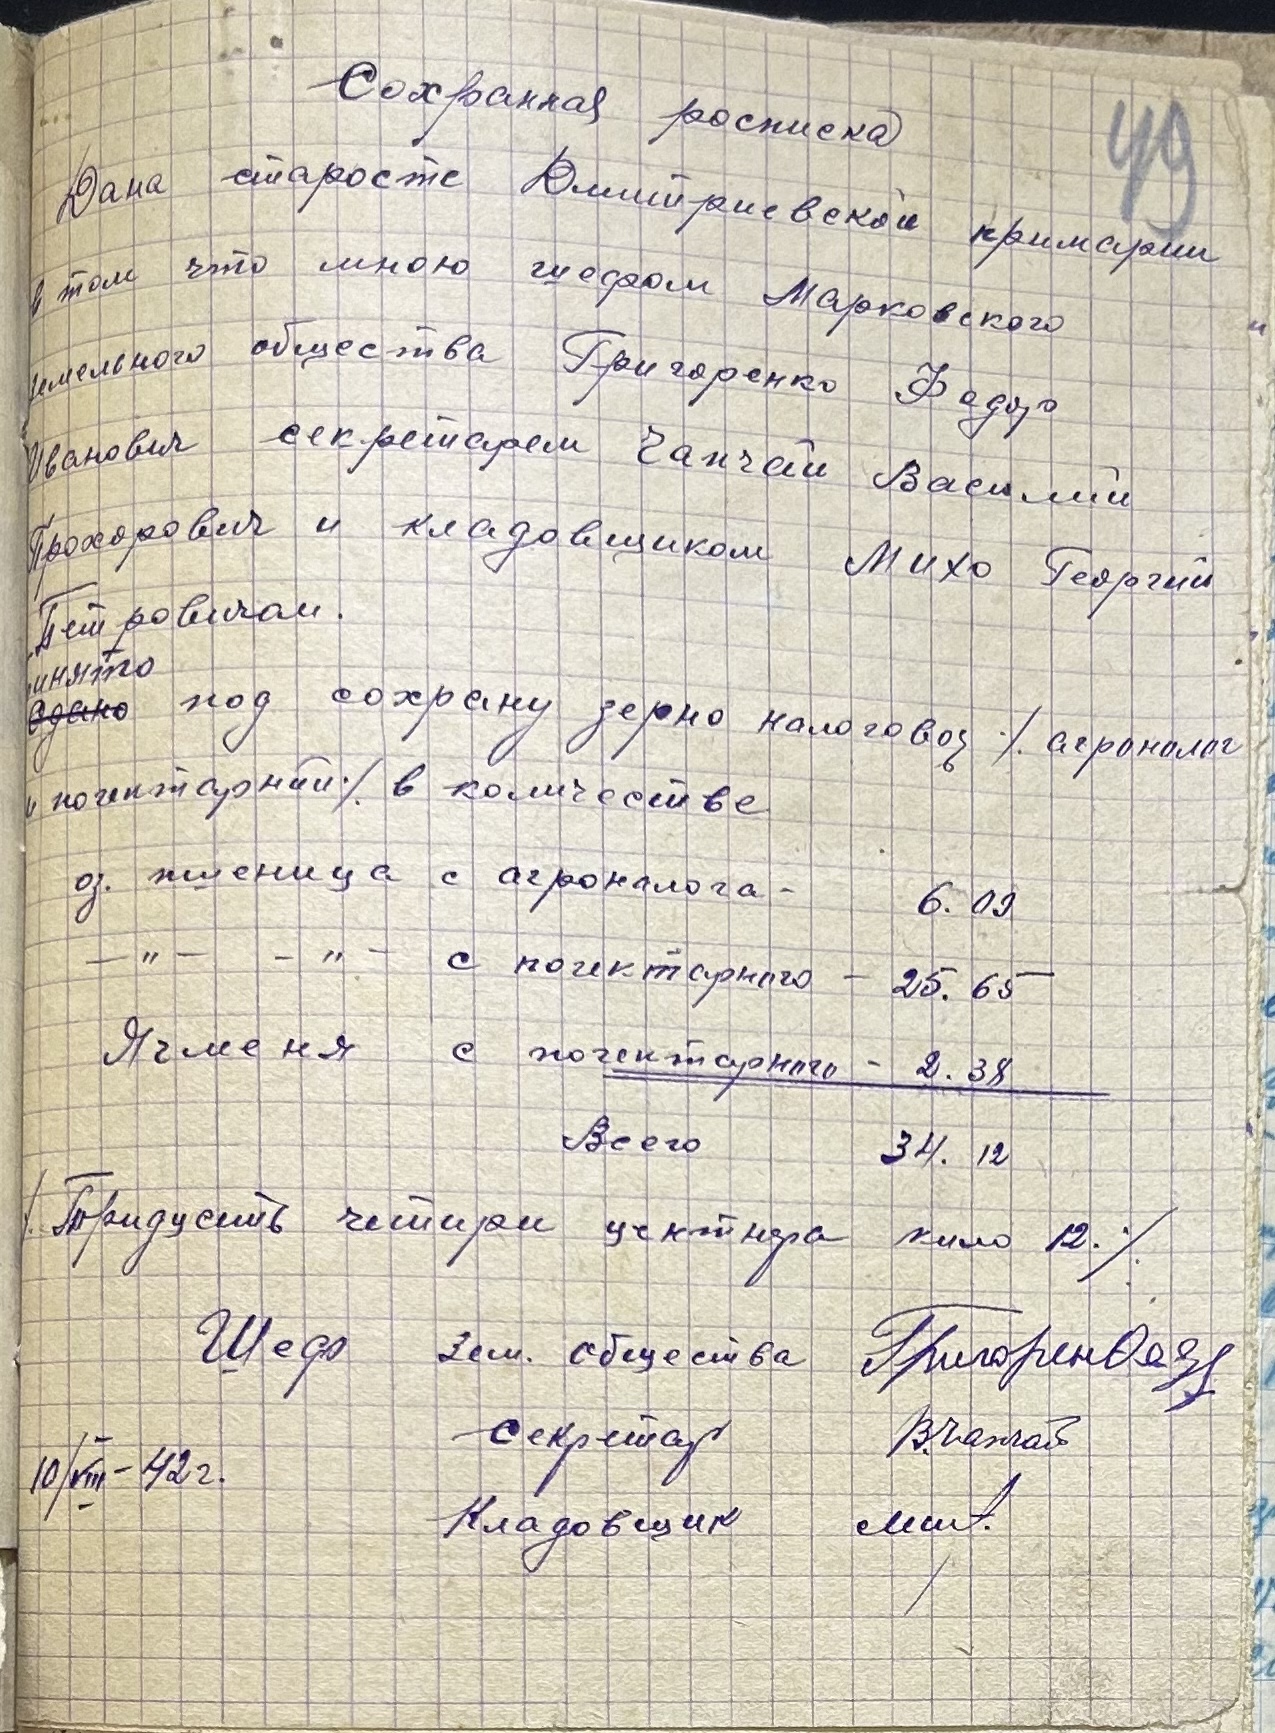 49
Сохранная росписка
Дана старосте Дмитриевской примарии
в том что мною шефом Марковского
земельного общества Григоренко Фадор
Иванович секретарем Чапчай Василий
Прохорович и кладовщиком Михо Георгий
Петровичам.
инято
сдано под сохрану зерно налоговоя ./. агроналог
и погектарний ./. в количестве
оз. пшеница с агроналога - 6. 09
— " — — " — с погектарного — 25. 65
Ячменя с погектарного - 2. 38
Всего 34. 12
/. Тридцсить четири центнера кило 12. ./.
Шеф зем. общества Григорен
секретар В.Чапчай
10/VIII - 42 г.
Кладовщик